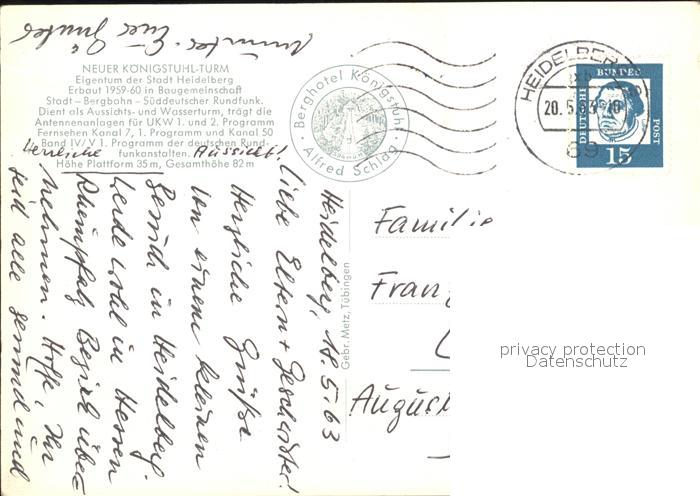 NEUER KÖNIGSTUHL-TURM
Eigentum der Stadt Heidelberg
Erbaut 1959-60 in Baugemeinschaft
Stadt – Bergbahn – Süddeutscher Rundfunk.
Dient als Aussichts- und Wasserturm, trägt die
Antennenanlagen für UKW 1. und 2. Programm
Fernsehen Kanal 7, 1. Programm und Kanal 50
Band IV/V 1. Programm der deutschen Rund-
funkanstalten.
Höhe Plattform 35m, Gesamthöhe 82m
Herrliche Aussicht!
Berghotel Königstuhl
Alfred Schlag
HEIDELBERG
20.5.63
69
DEUTSCHE
BUNDES
POST
15
Heidelberg, 18.5.63
Liebe Eltern + Geschwister!
Herzliche Grüße
von einem kleinen
Besuch in Heidelberg.
Werde wohl in Hessen
Rheinpfalz Bezirk über-
nehmen. Hoffe, Ihr
seid alle gesund und
munter. Euer
Gebr. Metz, Tübingen
Familie
Franz
August
privacy protection
Datenschutz